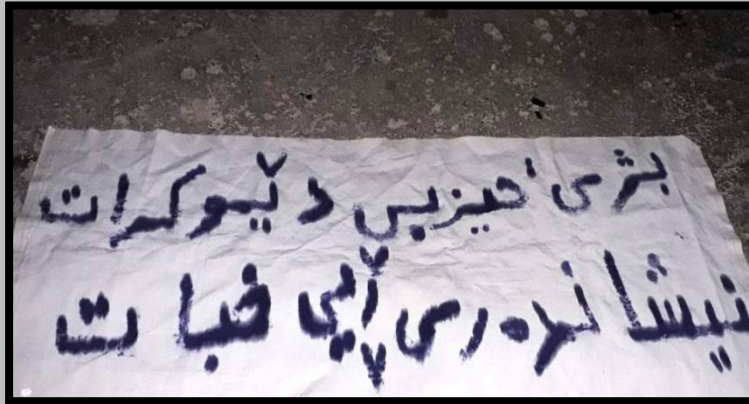 بژی حیزبی دێموکرات
نیشانەدەری ڕێی خبات